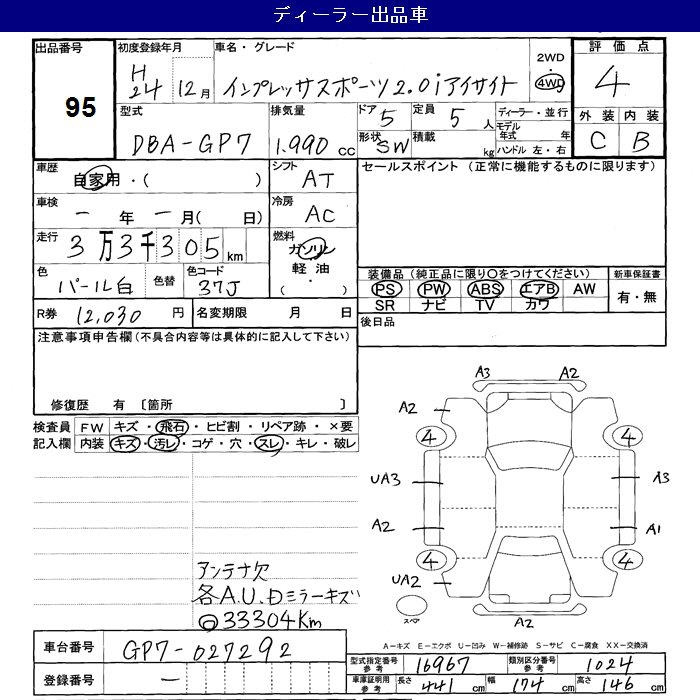 ディーラー出品車
出品番号
95
初度登録年月
H
24 12月
車名・グレード
インプレッサスポーツ2.0iアイサイト
2WD
・
4WD
評価点
4
外装 内装
C B
型式
DBA-GP7
排気量
1.990 cc
ドア 5
定員 5 人
形状 SW
積載 kg
ディーラー・並行
モデル
年式 年
ハンドル 左・右
車歴
自家用・( )
シフト
AT
車検
一 年 一 月( 日)
冷房
AC
走行
3 万 3 千 3 0 5 km
燃料
ガソリン
軽油
( ・ )
色
パール白
色替
色コード
37J
R券 12,030 円
名変期限 月 日
セールスポイント (正常に機能するものに限ります)
装備品 (純正品に限り〇をつけてください)
PS PW ABS エアB AW
SR ナビ TV カワ
新車保証書
有・無
後日品
注意事項申告欄 (不具合内容等は具体的に記入して下さい)
修復歴 有 [箇所 ]
検査員
記入欄
FW キズ・飛石・ヒビ割・リペア跡・×要
内装 キズ・汚レ・コゲ・穴・スレ・キレ・破レ
アンテナ欠
各A.U.Dミラーキズ
33304Km
A3 A2
A2
4 4
UA3 A3
A2 A1
4 4
UA2
スペア
A2
A―キズ E―エクボ U―凹み W―補修跡 S―サビ C―腐食 XX―交換済
車台番号 GP7-027292
登録番号 一
型式指定番号
参考
16967
類別区分番号
参考
1024
車庫証明用
参考
長さ 441 cm
幅 174 cm
高さ 146 cm